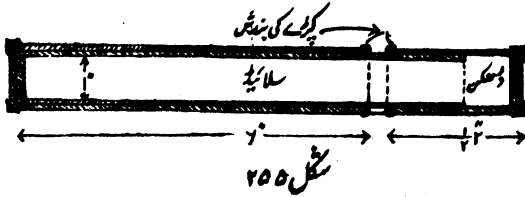 کپڑے کی بندش
سلائیڈ
ڈھکن
۱"
۶"
۲ ۱/۲"
شکل ۲۵۵